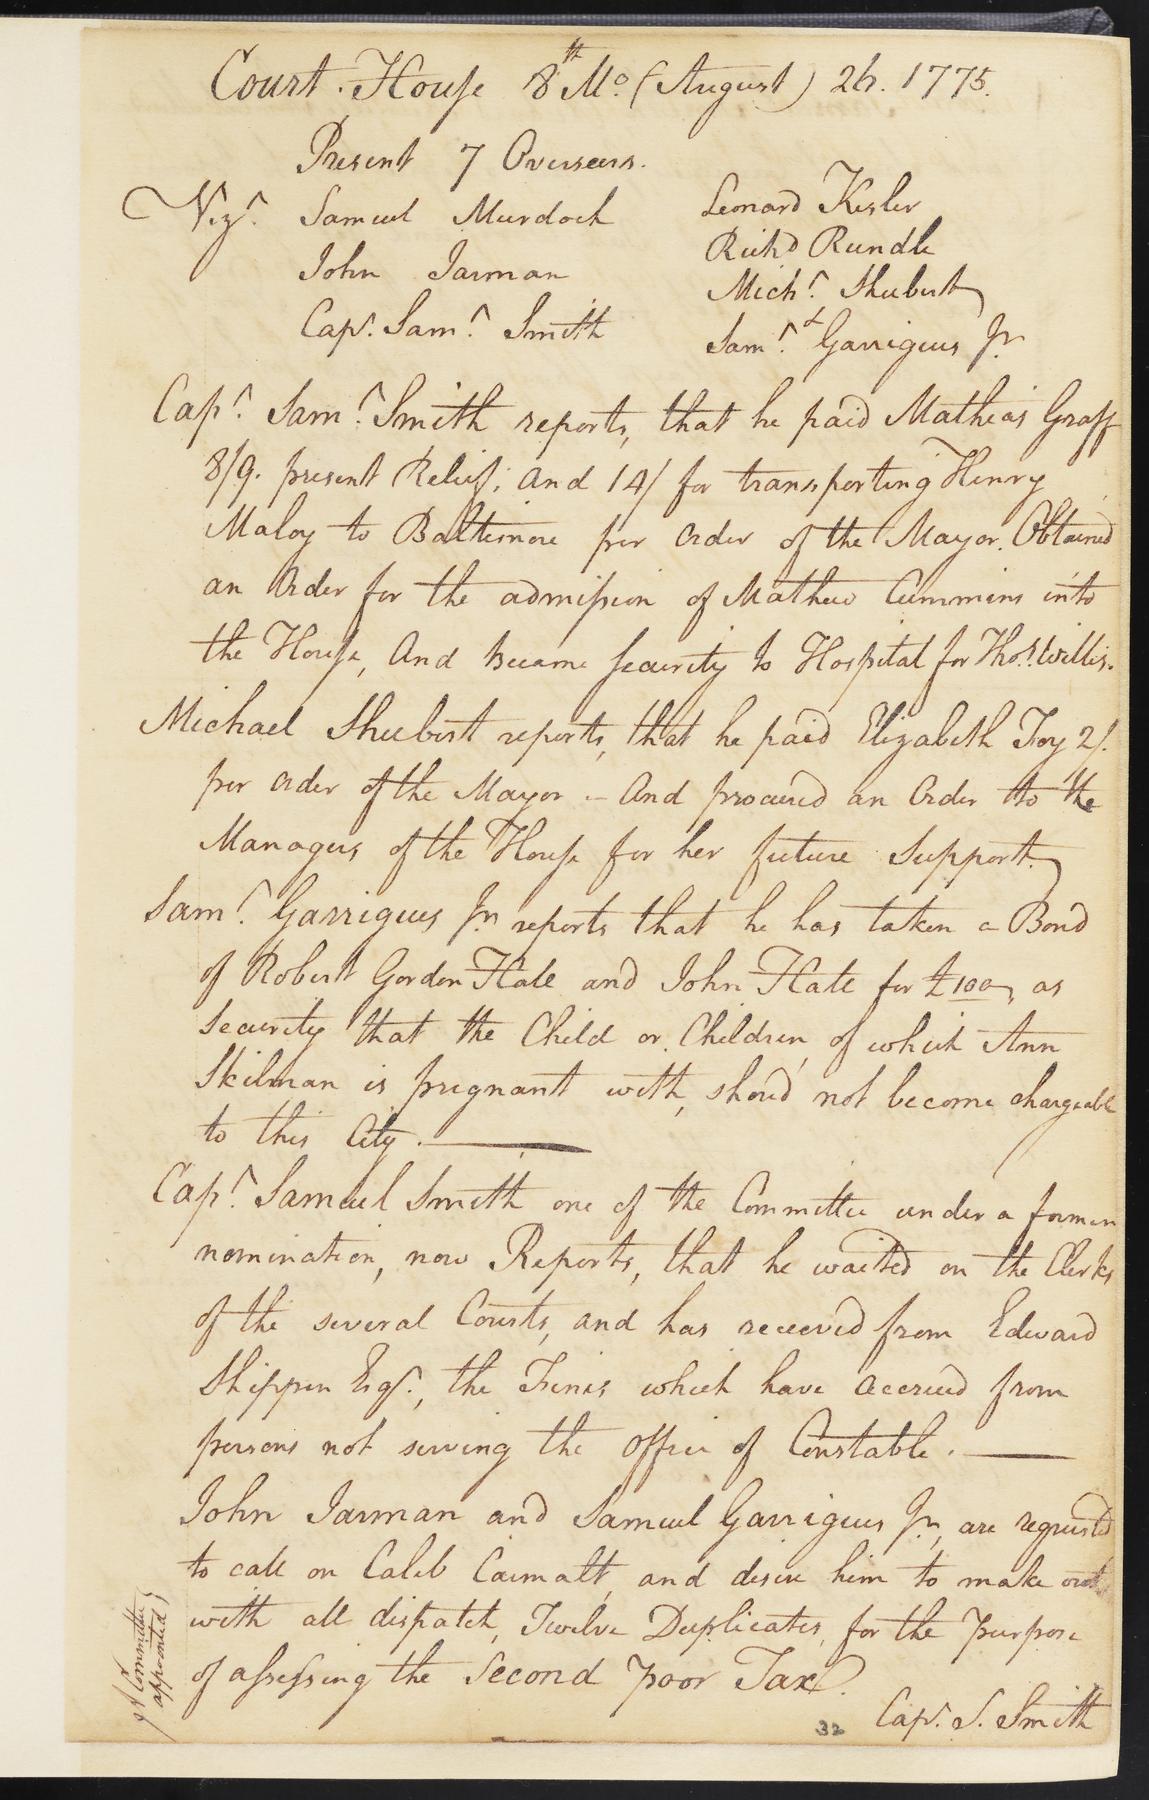 Court House 8th Mo. (August) 26. 1775.
Present 7 Overseers.
Vizt. Samuel Murdoch
John Jarman
Capt. Saml. Smith
Leonard Kesler
Richd Rundle
Michl. Shubert
Saml. Garrigues Jr
Capt. Saml. Smith reports, that he paid Mathias Graff
8/9. present Relief; and 14/ for transporting Henry
Maloy to Baltimore per order of the Mayor. Obtained
an Order for the admission of Mathew Cummins into
the House, And became Security to Hospital for Thos. Willis.
Michael Shubert reports, that he paid Elizabeth Foy 2/.
per order of the Mayor – And procured an Order to the
Managers of the House for her future Support.
Saml. Garrigues Jn reports that he has taken a Bond
of Robert Gordon Hale and John Hale for £100, as
Security that the Child or Children, of which Ann
Skilman is pregnant with, shoud not become chargeable
to this City.
Capt. Samuel Smith one of the Committee under a former
nomination, now Reports, that he waited on the Clerks
of the several Courts, and has received from Edward
Shippen Esqr., the Fines which have accrued from
persons not serving the Office of Constable.
John Jarman and Samuel Garrigues Jn, are requested
to call on Caleb Carmalt, and desire him to make out
with all dispatch, Twelve Duplicates, for the Purpose
of assessing the Second Poor Tax.
Committee
appointed
32
Capt. S. Smith